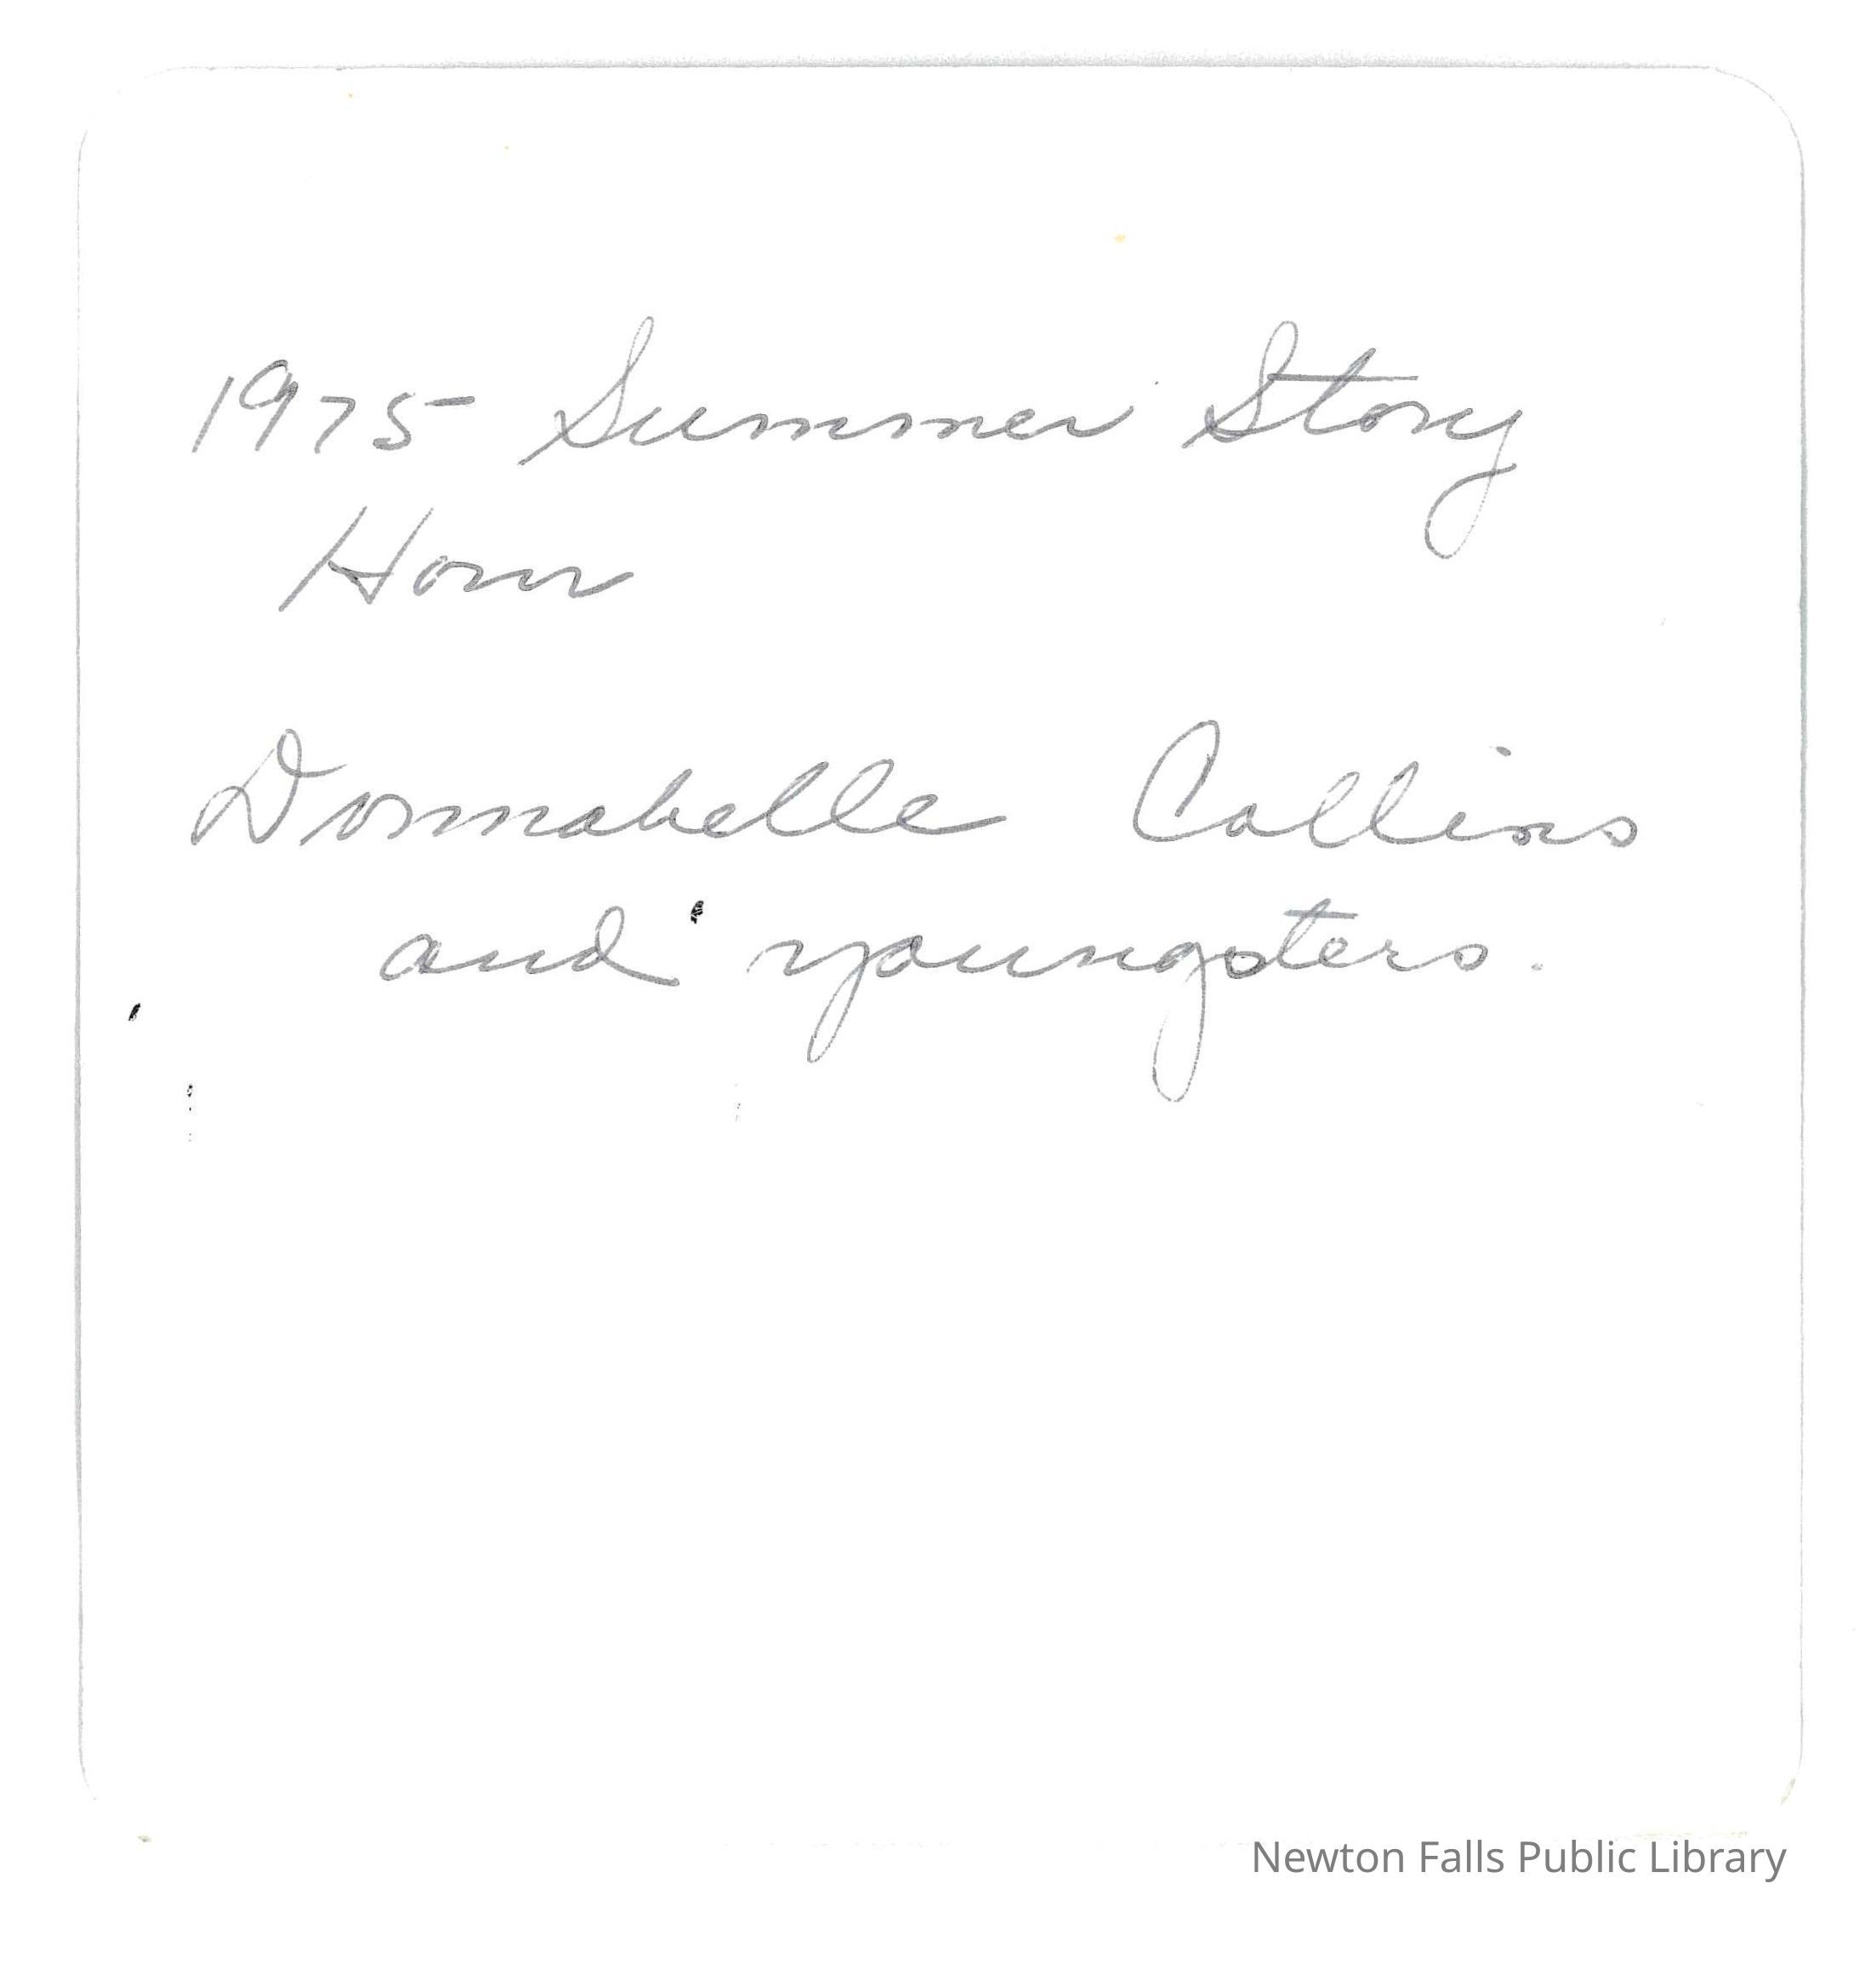 1975 Summer Story
Hour
Donnabelle Collins
and youngsters.
Newton Falls Public Library